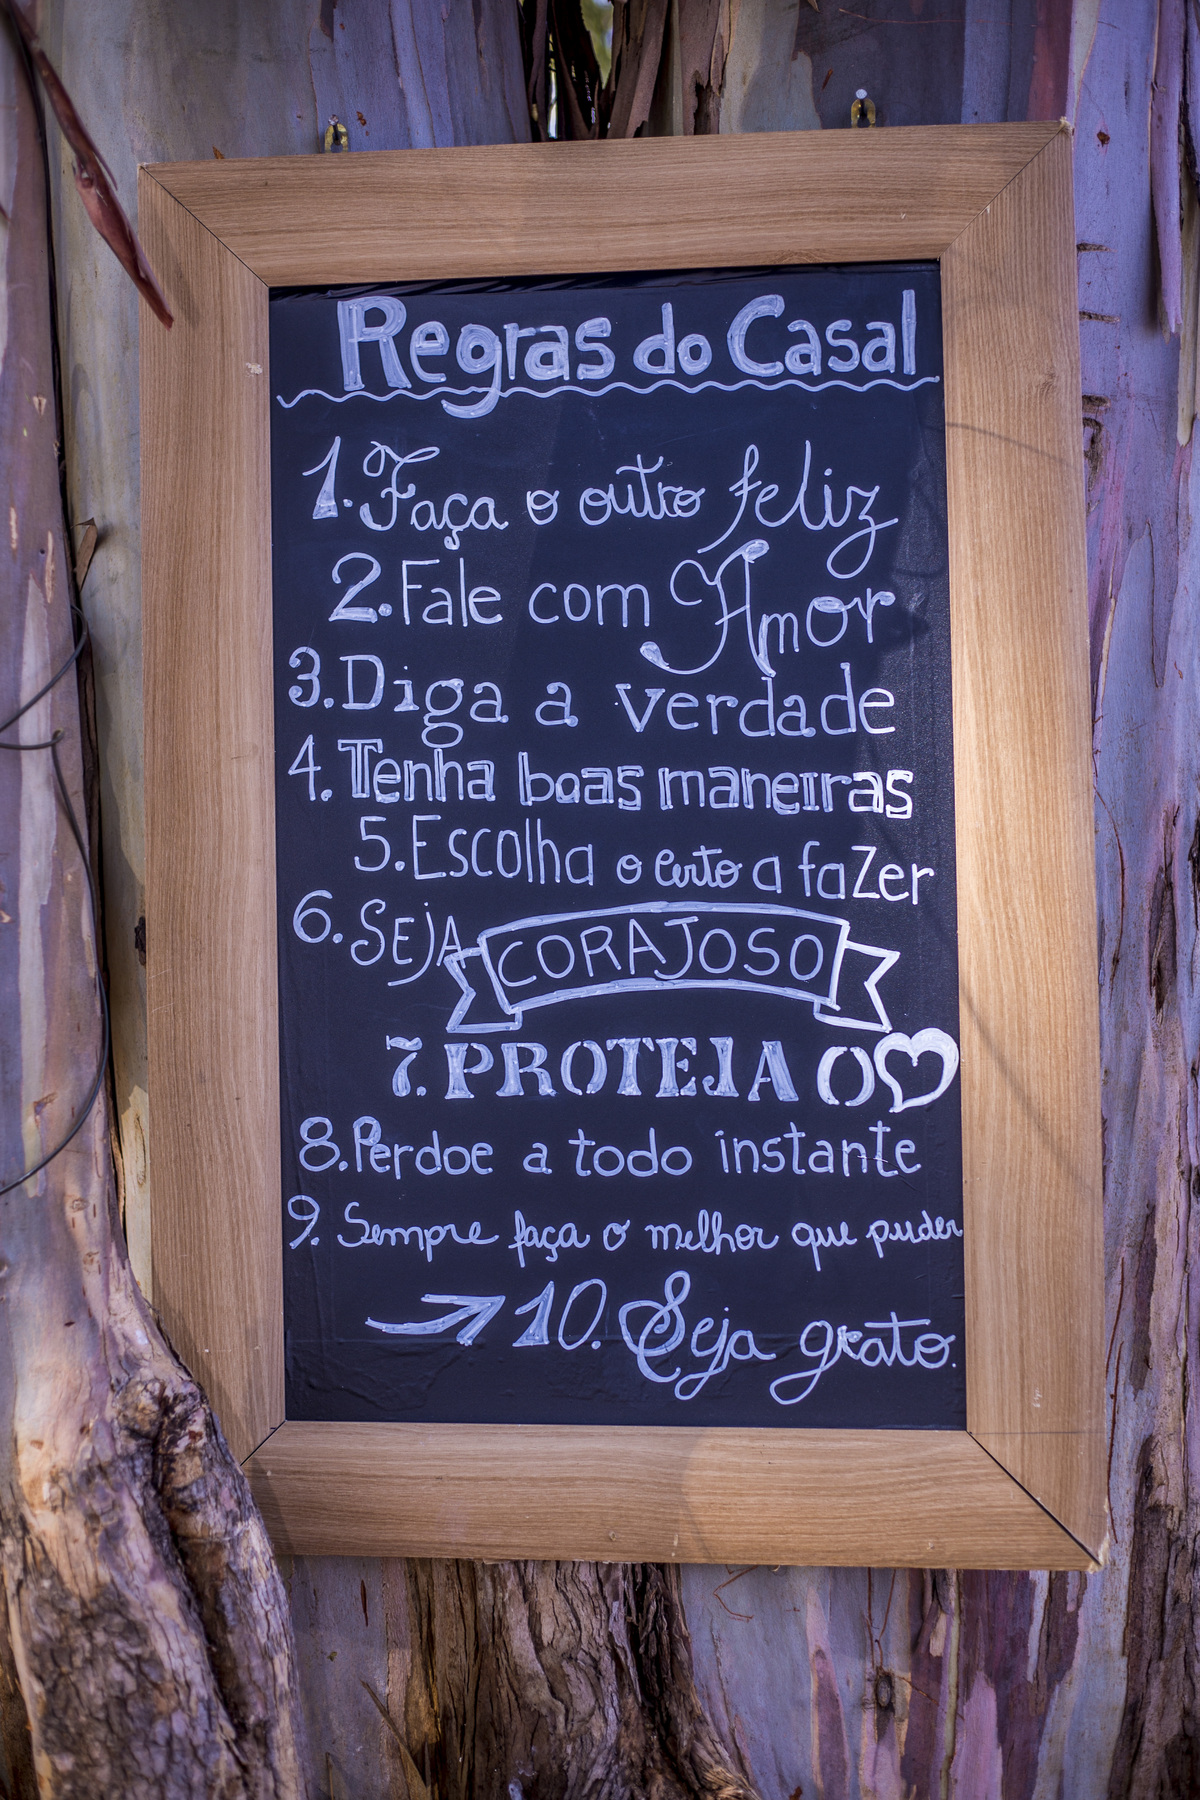 Regras do Casal
1. Faça o outro feliz
2. Fale com Amor
3. Diga a verdade
4. Tenha boas maneiras
5. Escolha o certo a fazer
6. SEJA CORAJOSO
7. PROTEJA O ♡
8. Perdoe a todo instante
9. Sempre faça o melhor que puder
→ 10. Seja grato.